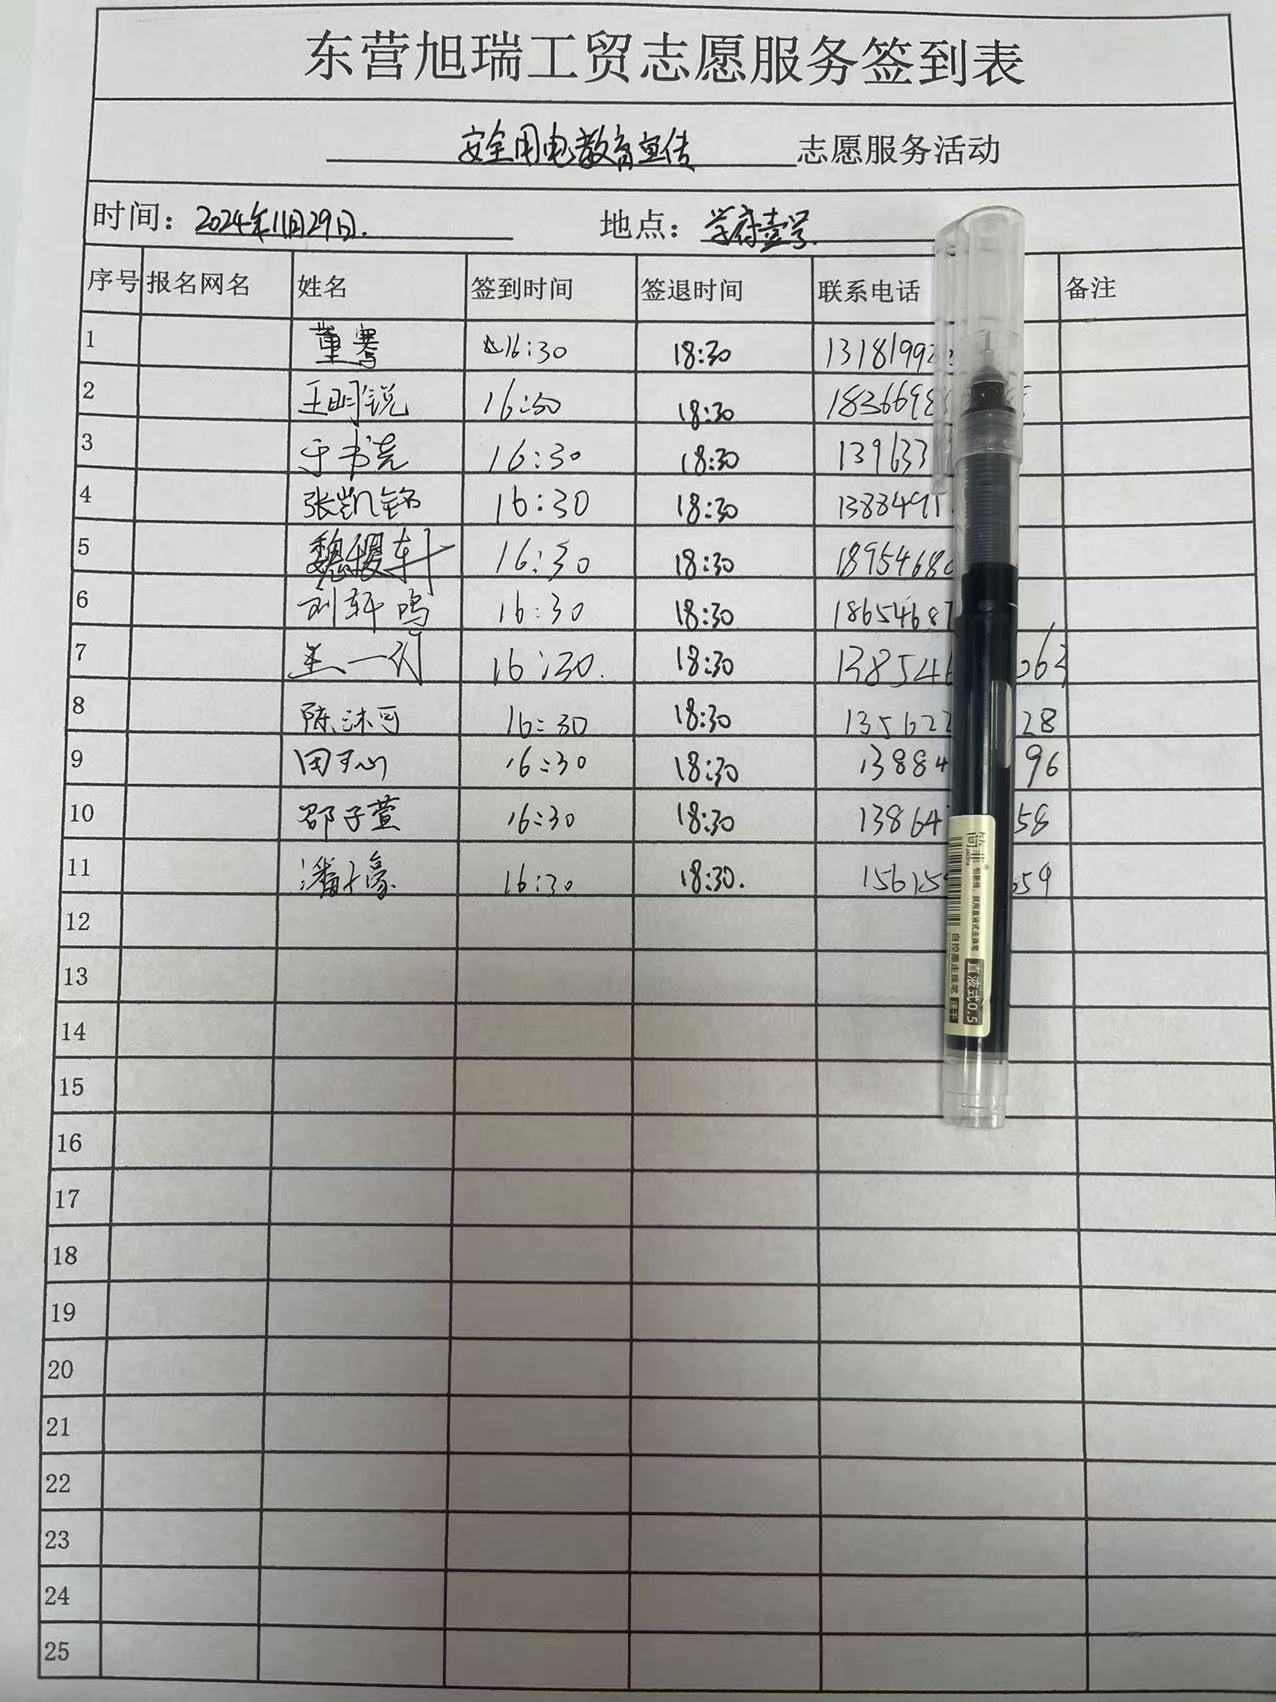 东营旭瑞工贸志愿服务签到表
安全用电教育宣传 志愿服务活动
时间：2024年11月29日. 地点：学府壹号
序号 报名网名 姓名 签到时间 签退时间 联系电话 备注
1 董骞 16:30 18:30 1318199
2 王明锐 16:30 18:30 1836698
3 于书尧 16:30 18:30 139633
4 张凯铭 16:30 18:30 1388491
5 魏稷轩 16:30 18:30 1895468
6 刘轩鸣 16:30 18:30 1865468
7 王一 16:30. 18:30 138546 063
8 陈沐可 16:30 18:30 135622 28
9 田 心 16:30 18:30 13884 96
10 邵子萱 16:30 18:30 13864 58
11 潘 豪 16:30 18:30. 15615 659
12
13
14
15
16
17
18
19
20
21
22
23
24
25
简菲
直液式0.5
自控墨走珠笔 速干